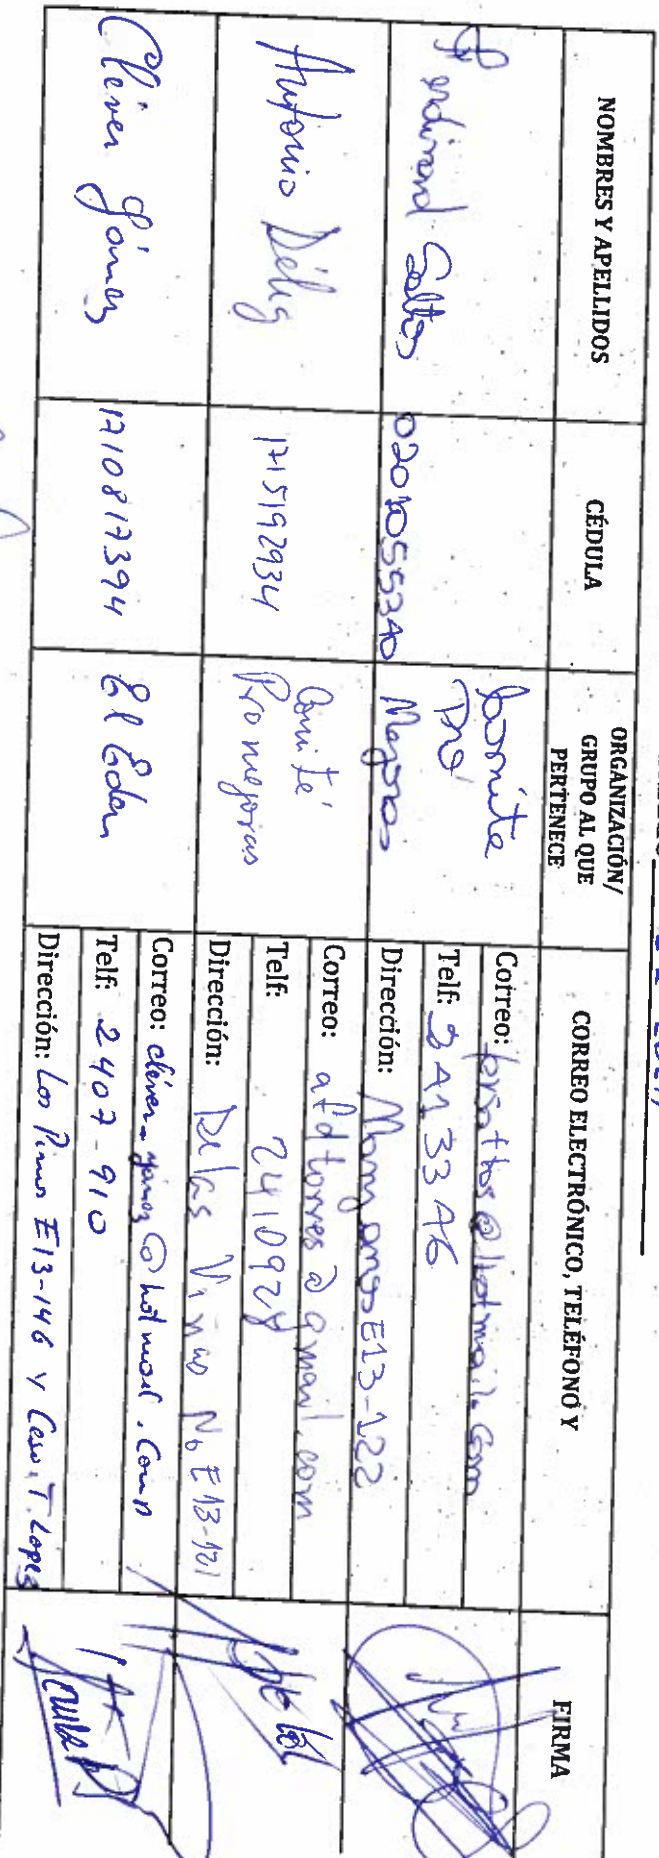 NOMBRES Y APELLIDOS
CÉDULA
ORGANIZACIÓN/
GRUPO AL QUE
PERTENECE
CORREO ELECTRÓNICO, TELÉFONO Y
FIRMA
Ferdinand Saltos
0201055340
Comite
Pro
Mejoras
Correo: @hotmail.com
Telf: 2413346
Dirección: Manzanos E13-122
Antonio Délg
1715192934
Comité
Promejoras
Correo: afdtorres@gmail.com
Telf: 2410928
Dirección: De las Viñas No E13-121
Cléver Yánez
1710817394
El Eden
Correo: clever_yanez@hotmail.com
Telf: 2407-910
Dirección: Los Pinos E13-146 y Cesar T. Lopez